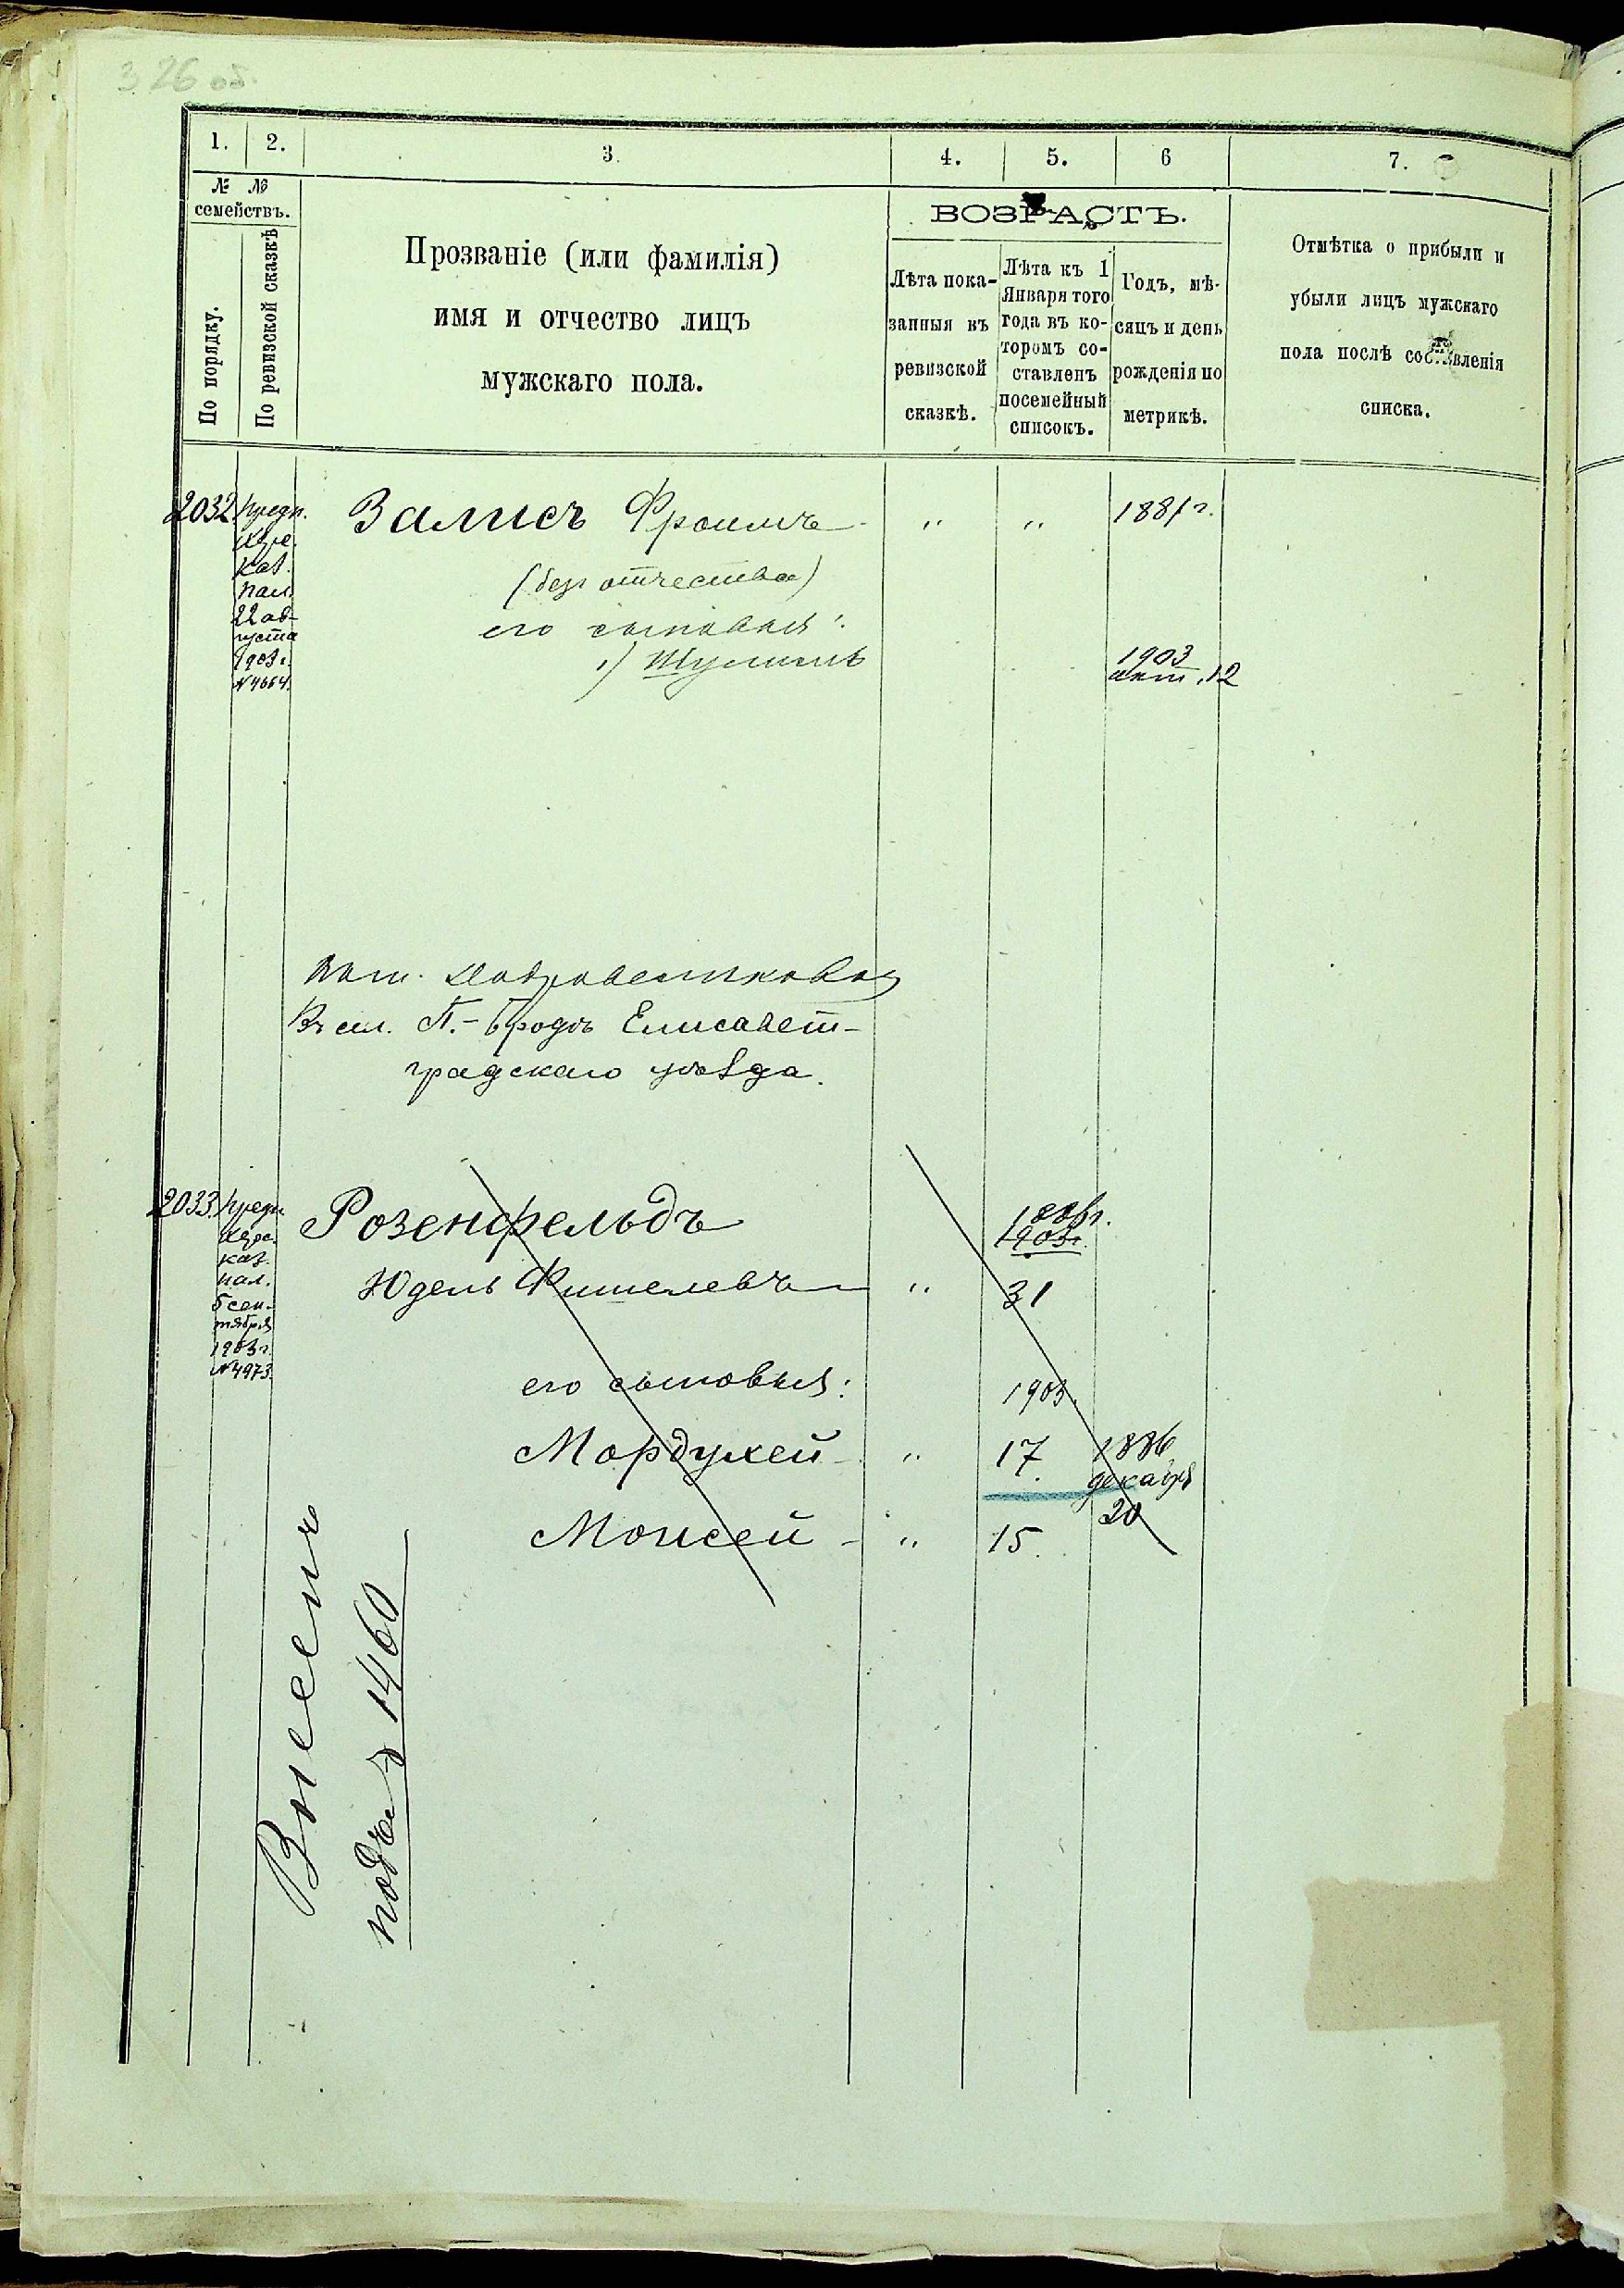 326 об.
1. 2. 3. 4. 5. 6 7.
№ №
семействъ.
По порядку.
По ревизской сказкѣ
Прозваніе (или фамилія)
имя и отчество лицъ
мужскаго пола.
ВОЗРАСТЪ.
Лѣта пока-
занныя въ
ревизской
сказкѣ.
Лѣта къ 1
Января того
года въ ко-
торомъ со-
ставленъ
посемейный
списокъ.
Годъ, мѣ-
сяцъ и день
рожденія по
метрикѣ.
Отмѣтка о прибыли и
убыли лицъ мужскаго
пола послѣ составленія
списка.
2032.
Предп.
Хер.
каз.
пал.
22 ав-
густа
1903 г.
№ 4664.
Залисъ Фроимъ " " 1881 г.
(безъ отчества)
его сыновья:
1) Шулимъ 1903
окт. 12
Добровеличковка
Въ П.-Бродъ Елисавет-
градскаго уѣзда.
2033.
Предп.
Хер.
каз.
пал.
5 сен-
тября
1903 г.
№ 4973.
Розенфельдъ
1903 г.
Юдель Фишелевъ " 31
его сыновья: 1903.
Мордухей " 17 1886
декабря
20
Моисей " 15.
Внесенъ
подъ № 1460